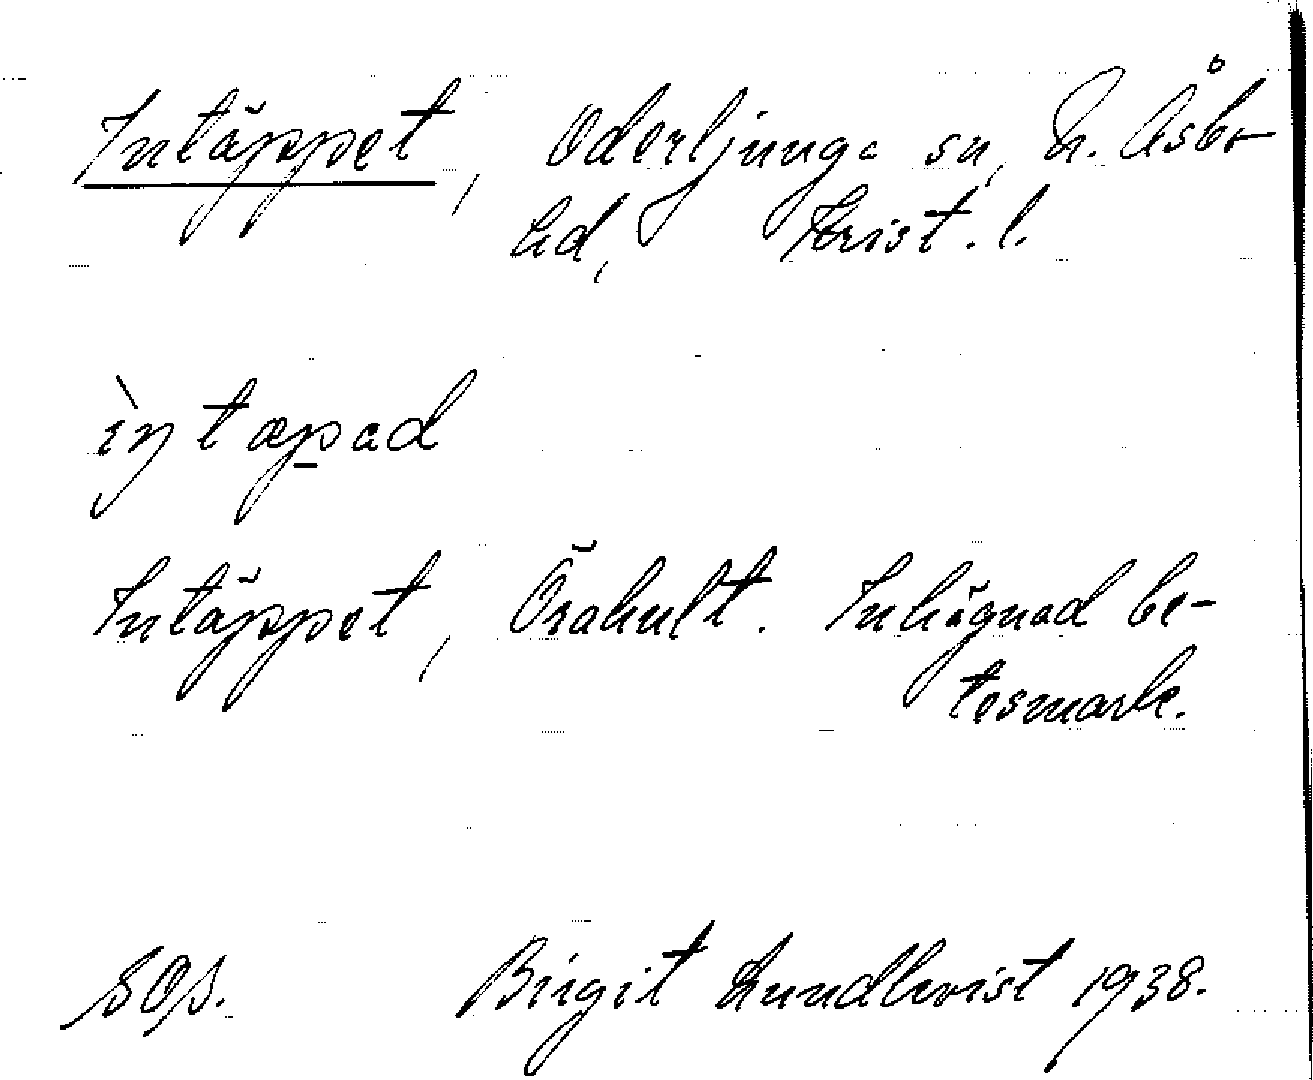 Intäppet, Oderljunga sn, N. Åsbo
hd, Krist. l.
ìntæpad
Intäppet, Örahult. Inhägnad be-
tesmark.
SOS. Birgit Lundkvist 1938.